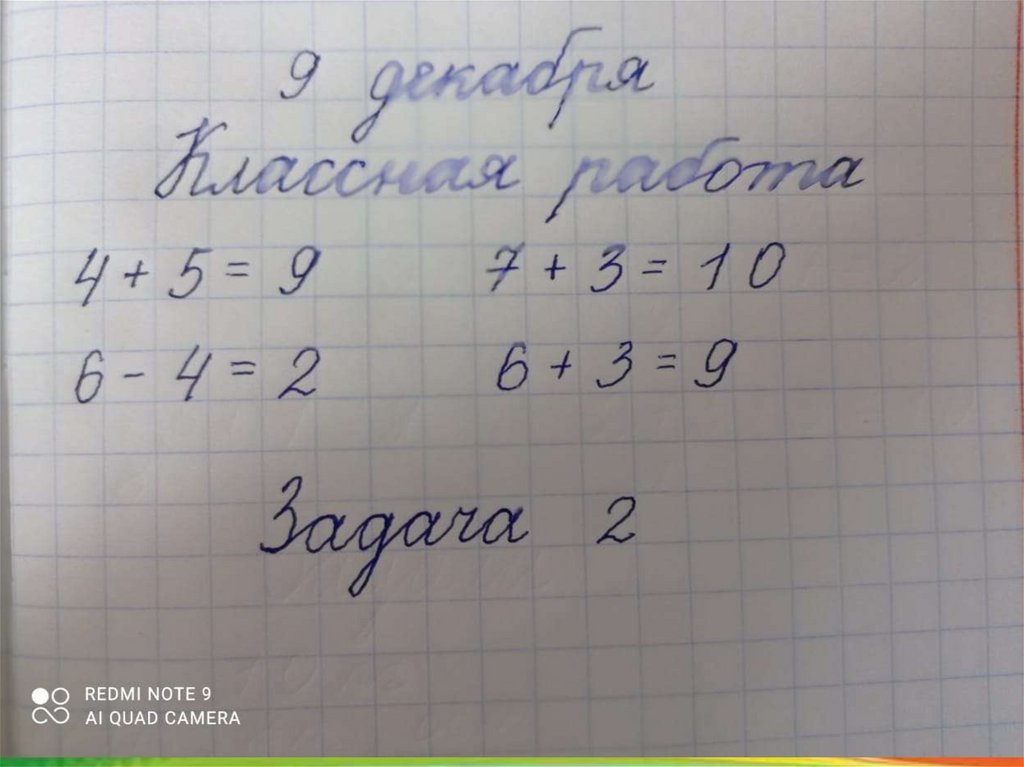 9 декабря
Классная работа
4 + 5 = 9 7 + 3 = 10
6 - 4 = 2 6 + 3 = 9
Задача 2
REDMI NOTE 9
AI QUAD CAMERA